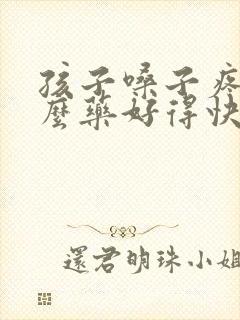 孩子嗓子疼
麼藥好得快
還君明珠小姐